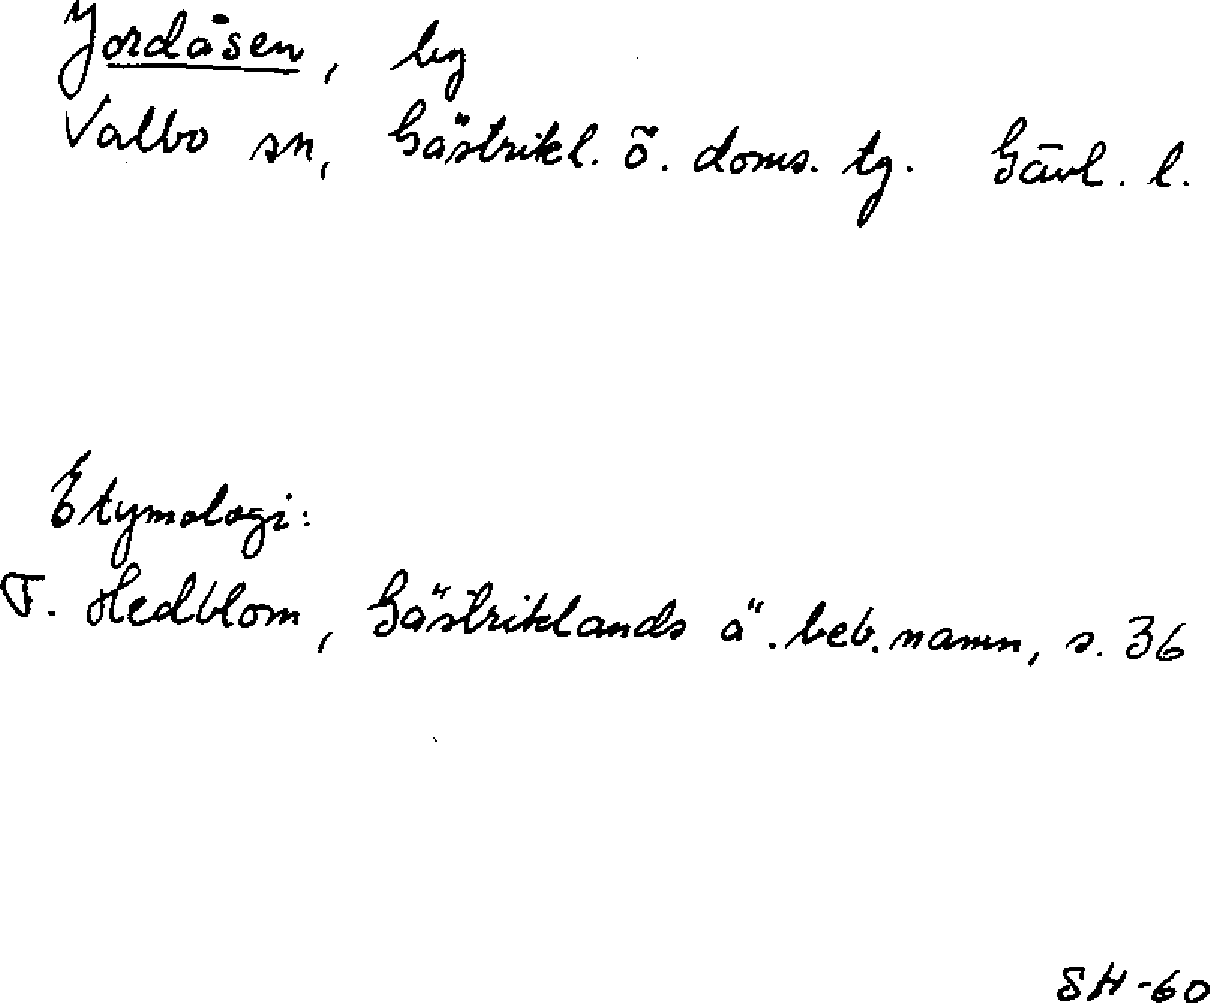 Jordåsen, by
Valbo sn, Gästrikl. ö. doms. tg. Gävl. l.
Etymologi:
F. Hedblom, Gästriklands ä. beb. namn, s. 36
SH-60